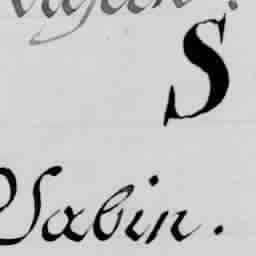 S
Sabin.